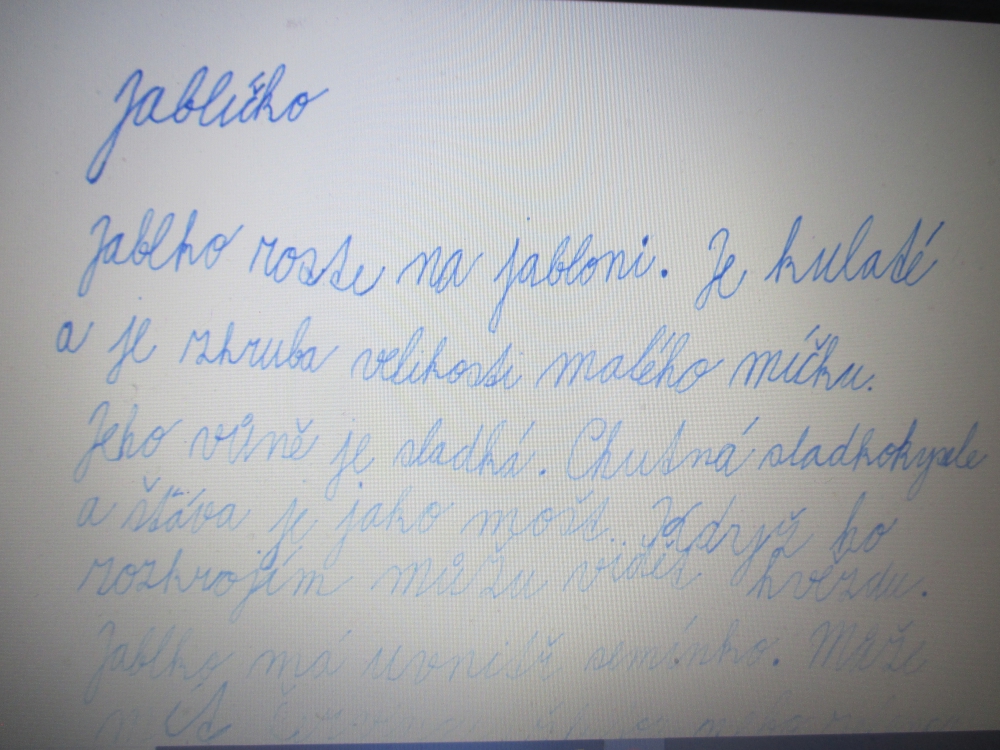 Jablíčko
Jablko roste na jabloni. Je kulaté
a je zhruba velikosti malého míčku.
Jeho vůně je sladká. Chutná sladkokysele
a šťáva je jako mošt. Když ho
rozkrojím můžu vidět hvězdu.
Jablko má uvnitř semínko. Může
mít